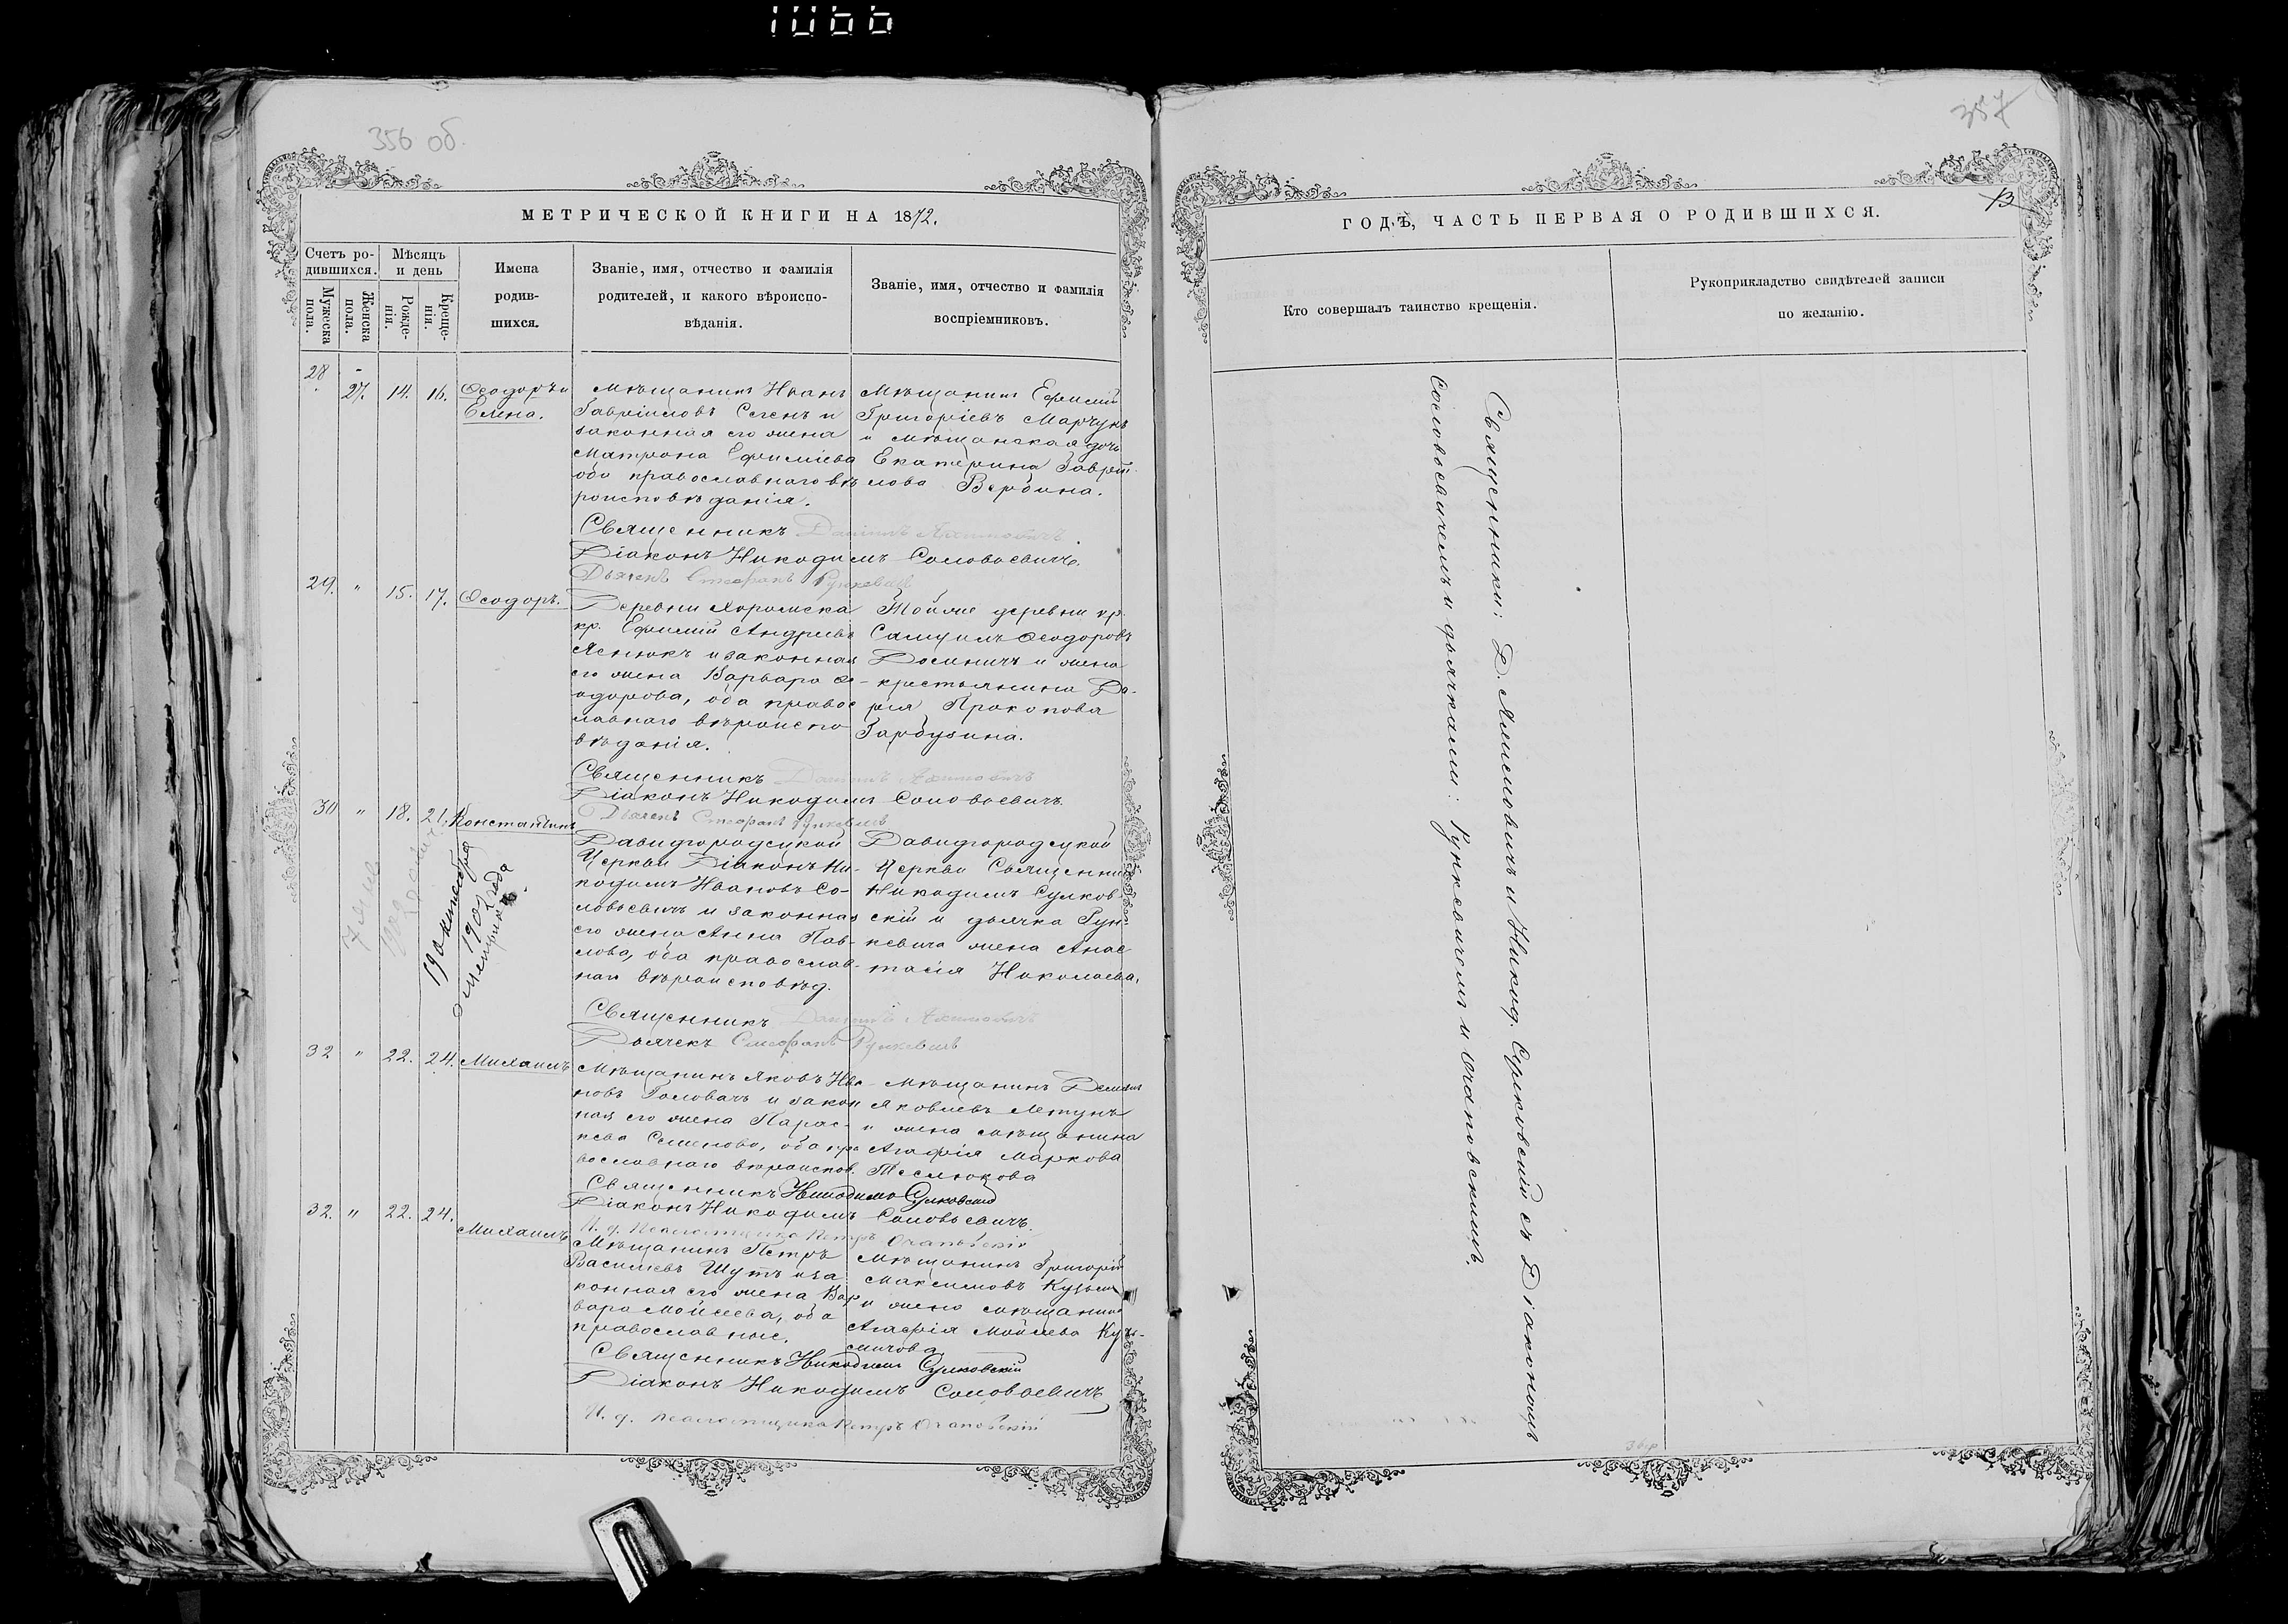 1066
356 об.
МЕТРИЧЕСКОЙ КНИГИ НА 1872.
Счетъ родившихся.
Мѣсяцъ и день
Имена родившихся.
Званіе, имя, отчество и фамилія родителей, и какого вѣроисповѣданія.
Званіе, имя, отчество и фамилія воспріемниковъ.
Мужеска пола.
Женска пола.
Рожденія.
Крещенія.
28
27. 14. 16. Ѳеодоръ и
Елена.
Мѣщанинъ Иванъ
Гавріиловъ Сегенъ и
законная его жена
Матрона Ефиміева
оба православнаго вѣ
роисповѣданія.
Мѣщанинъ Ефимій
Григоріевъ Марчукъ
и мѣщанская дочь
Екатерина Гаврі
лова Вербина.
Священникъ Даніилъ Ахимовичъ
Діаконъ Никодимъ Соловьевичъ.
Дьячекъ Стефанъ Рункевичъ
29. " 15. 17. Ѳеодоръ.
Деревни Хоромска
кр. Ефимій Андреевъ
Яснюкъ и законная
его жена Варвара Ѳе-
одорова, оба правос
лавнаго вѣроиспо
вѣданія.
Тойже деревни кр.
Самуилъ Ѳеодоровъ
и жена
крестьянина Да-
рія Прокопова
Гарбузина.
Священникъ Даніилъ Ахимовичъ
Діаконъ Никодимъ Соловьевичъ
Дьячекъ Стефанъ Рункевичъ
30 " 18. 21. Константинъ
19 октября
1901 года
Давидгородецкой
Церкви Діаконъ Ни-
кодимъ Ивановъ Со-
ловьевичъ и законная
его жена Анна Пав-
лова, оба православ-
наго вѣроисповѣд.
Давидгородецкой
Церкви Священникъ
Никодимъ Сулков-
скій и дьячка Рун-
кевича жена Анас
тасія Николаева.
Священникъ Даніилъ Ахимовичъ
Дьячекъ Стефанъ Рункевичъ
32 " 22. 24. Михаилъ
Мѣщанинъ Яковъ Ива-
новъ Головачъ и закон
ная его жена Парас-
кева Семенова, оба пра
вославнаго вѣроиспов.
Мѣщанинъ Демьянъ
Яковлевъ Летунъ
и жена мѣщанина
Агафія Маркова
Теслюкова
Священникъ Никодимъ Сулковскій
Діаконъ Никодимъ Соловьевичъ.
И. д. псаломщика Петръ Очаповскій
32. " 22. 24. Михаилъ
Мѣщанинъ Петръ
Василіевъ Шутъ и за
конная его жена Вар
вара Мойсеева, оба
православные.
Мѣщанинъ Григорій
Максимовъ Кузьмич
и жена мѣщанина
Агафія Мойсеева Кузь-
мичова
Священникъ Никодимъ Сулковскій
Діаконъ Никодимъ Соловьевичъ
И. д. псаломщика Петръ Очаповскій
357
13
ГОДѢ, ЧАСТЬ ПЕРВАЯ О РОДИВШИХСЯ.
Кто совершалъ таинство крещенія.
Рукоприкладство свидѣтелей записи по желанію.
Священники: Д. Ахимовичъ и Никод. Сулковскій съ Діакономъ
Соловьевичемъ и дьячками: Рункевичемъ и Очаповскимъ.